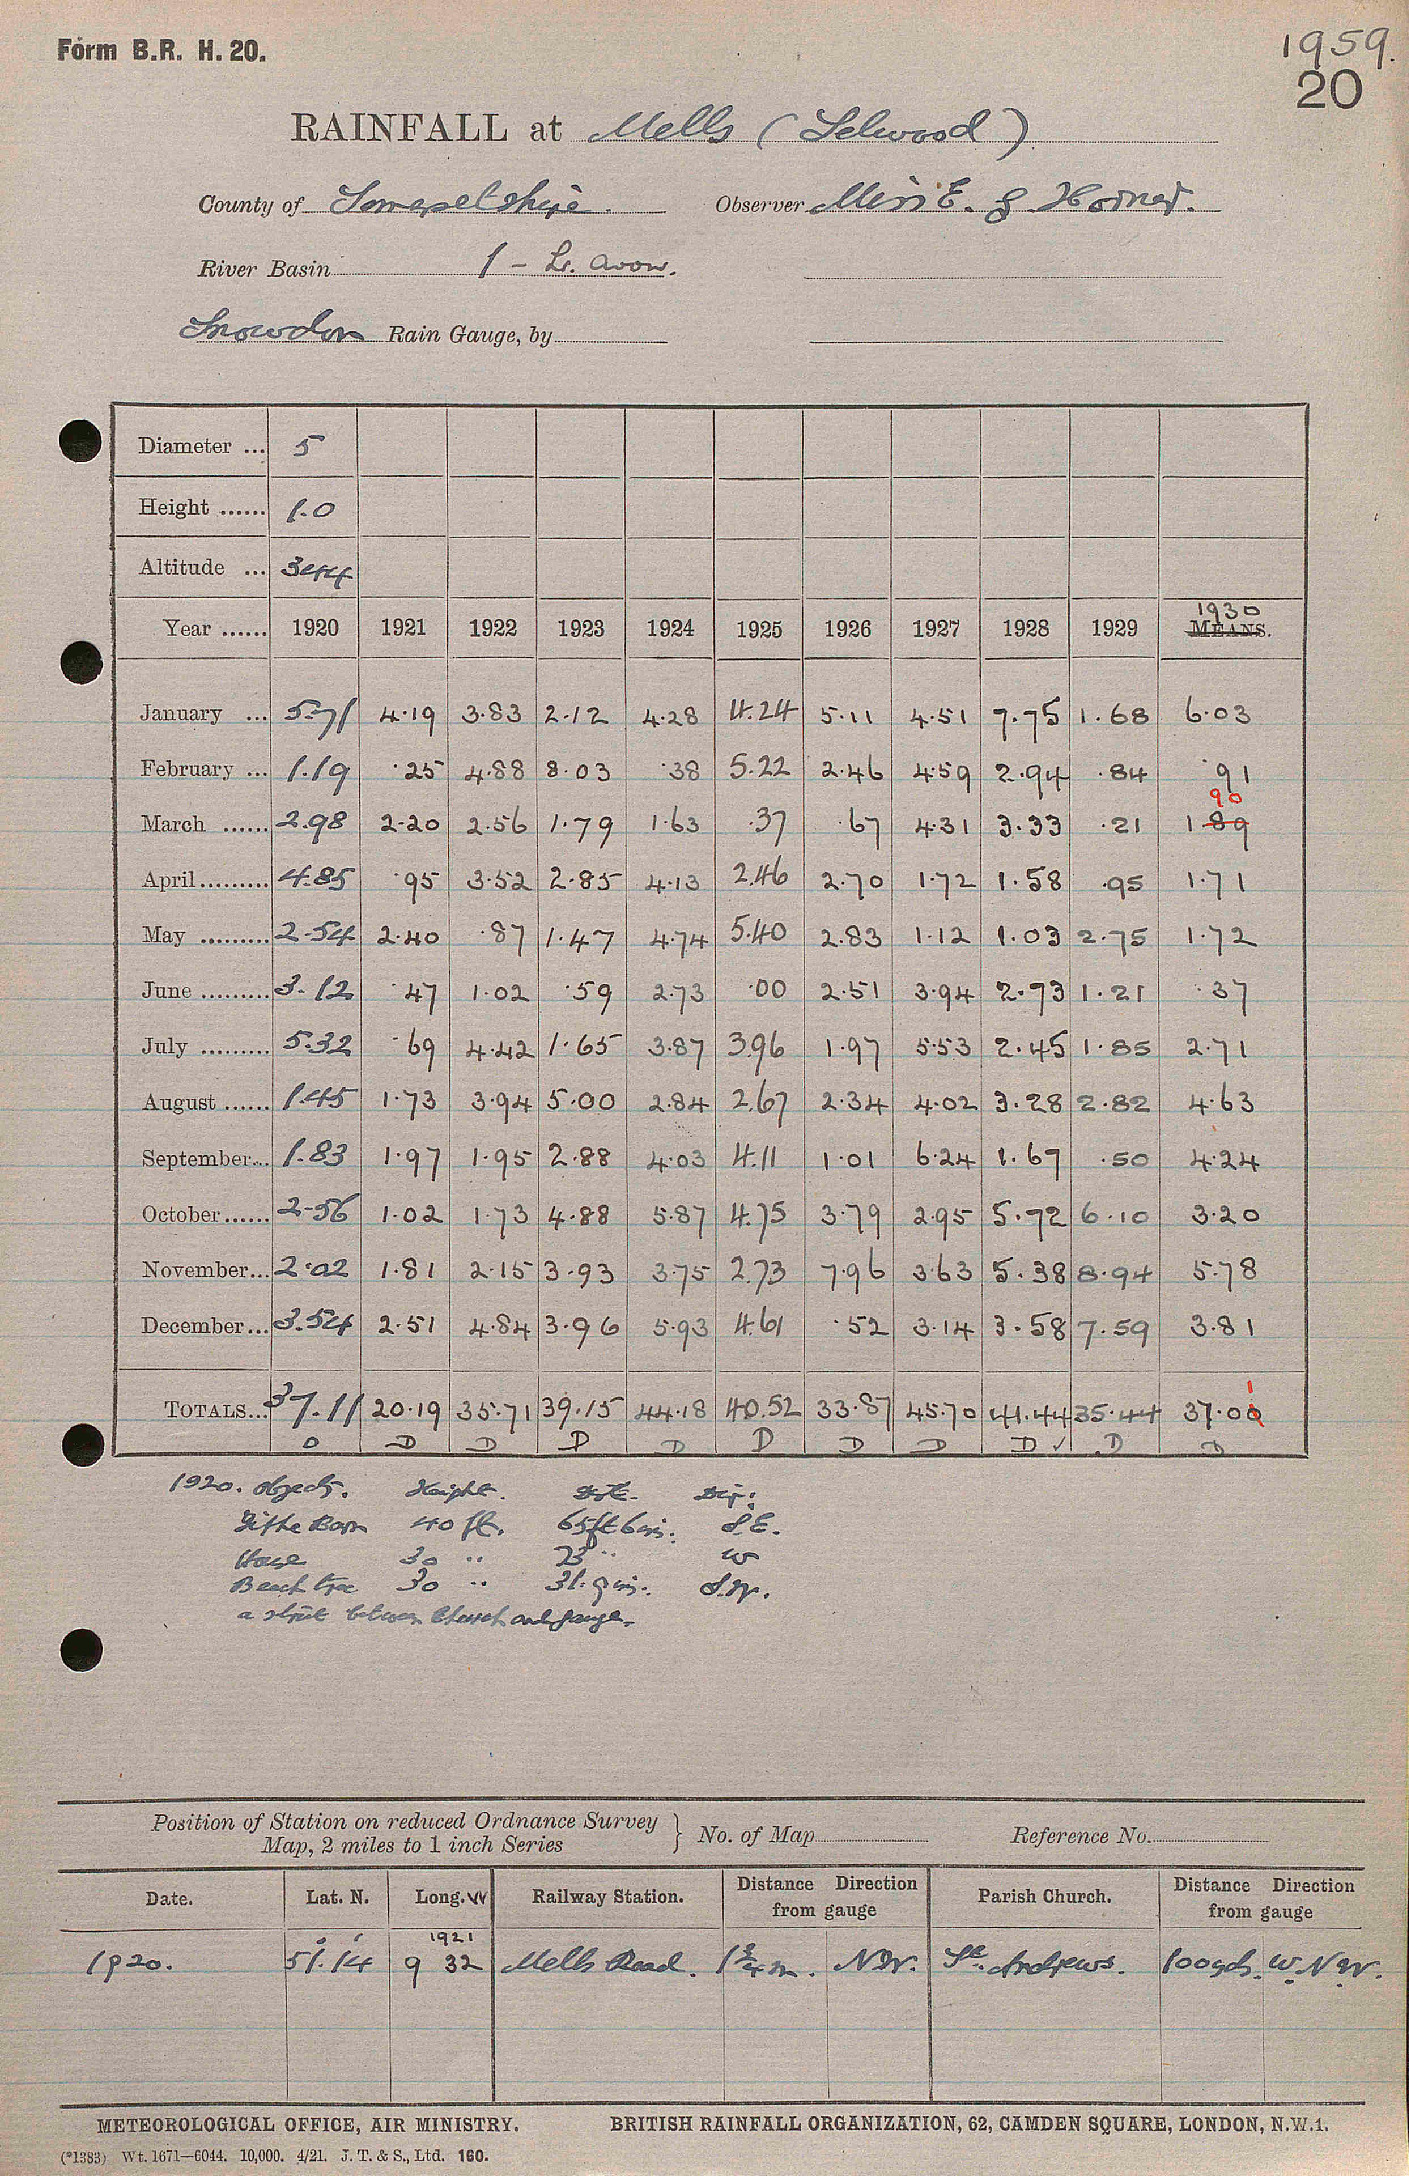 Form B.R. H. 20.
1959.
20
RAINFALL at Mells (Selwood)
County of Somersetshire. Observer Miss E. G Horner.
River Basin 1 - Lr. Avon.
Snowdon Rain Gauge, by
Diameter ... 5
Height ...... 1.0
Altitude ... 344
1930
Year ...... 1920 1921 1922 1923 1924 1925 1926 1927 1928 1929 MEANS.
January ... 5.71 4.19 3.83 2.12 4.28 4.24 5.11 4.51 7.75 1.68 6.03
February ... 1.19 .25 4.88 8.03 .38 5.22 2.46 4.59 2.94 .84 .91
90
March ...... 2.98 2.20 2.56 1.79 1.63 .37 .67 4.31 3.33 .21 1 89
April ......... 4.85 .95 3.52 2.85 4.13 2.46 2.70 1.72 1.58 .95 1.71
May ......... 2.54 2.40 .87 1.47 4.74 5.40 2.83 1.12 1.03 2.75 1.72
June ......... 3.12 .47 1.02 .59 2.73 .00 2.51 3.94 2.73 1.21 .37
July ......... 5.32 .69 4.42 1.65 3.87 3.96 1.97 5.53 2.45 1.85 2.71
August ...... 1.45 1.73 3.94 5.00 2.84 2.67 2.34 4.02 3.28 2.82 4.63
September... 1.83 1.97 1.95 2.88 4.03 4.11 1.01 6.24 1.67 .50 4.24
October...... 2.56 1.02 1.73 4.88 5.87 4.75 3.79 2.95 5.72 6.10 3.20
November... 2.02 1.81 2.15 3.93 3.75 2.73 7.96 3.63 5.38 8.94 5.78
December... 3.54 2.51 4.84 3.96 5.93 4.61 .52 3.14 3.58 7.59 3.81
1
TOTALS... 37.11 20.19 35.71 39.15 44.18 40.52 33.87 45.70 41.44 35.44 37.00
D D D D D D D D D ✓ D D
1920. Objects. Height. Dist. Dir:
Tithe Barn 40 ft. 65ft 6 ins. S.E.
House 30 " 23 " W
Beech tree 30 " 31. 9 ins. S.W.
a street between Church and gauge.
Position of Station on reduced Ordnance Survey
Map, 2 miles to 1 inch Series } No. of Map Reference No.
Date. Lat. N. Long. W Railway Station. Distance Direction from gauge Parish Church. Distance Direction from gauge
1921
1920. 51° 14' 9 32 Mells Road. 1 3/4 m. NW. St. Andrews. 100yds. W.NW.
METEOROLOGICAL OFFICE, AIR MINISTRY. BRITISH RAINFALL ORGANIZATION, 62, CAMDEN SQUARE, LONDON, N.W.1.
(*1383) Wt. 1671—6044. 10,000. 4/21. J. T. & S., Ltd. 160.